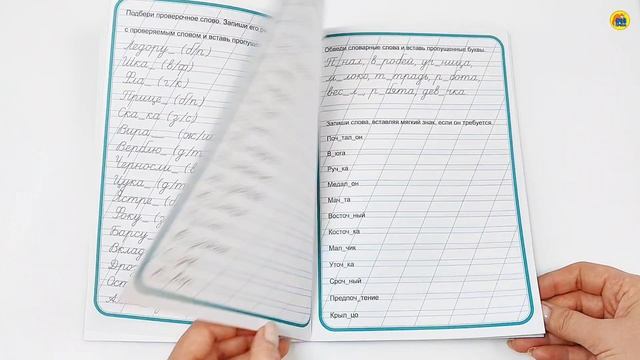 Подбери проверочное слово. Запиши его
с проверяемым словом и вставь
Ледору_ (б/п)
Шка_ (в/ф)
Фла_ (г/к)
Прице_ (б/п)
Ска_ка (з/с)
Вира_ (ж/ш
Вербл_ (д/т
Черносли_ (в
Цука_ (д/т
Ястре_ (б
Фоку_ (з
Барсу_
Вклад
Дро
Ост
А
Обведи словарные слова и вставь пропущенные буквы.
П_нал, в_робей, уч_ница,
м_локо, т_традь, р_бота,
вес_л_, р_бята, дев_чка
Запиши слова, вставляя мягкий знак, если он требуется.
Поч_тал_он
В_юга
Руч_ка
Медал_он
Мач_та
Восточ_ный
Косточ_ка
Мал_чик
Уточ_ка
Сроч_ный
Предпоч_тение
Крыл_цо